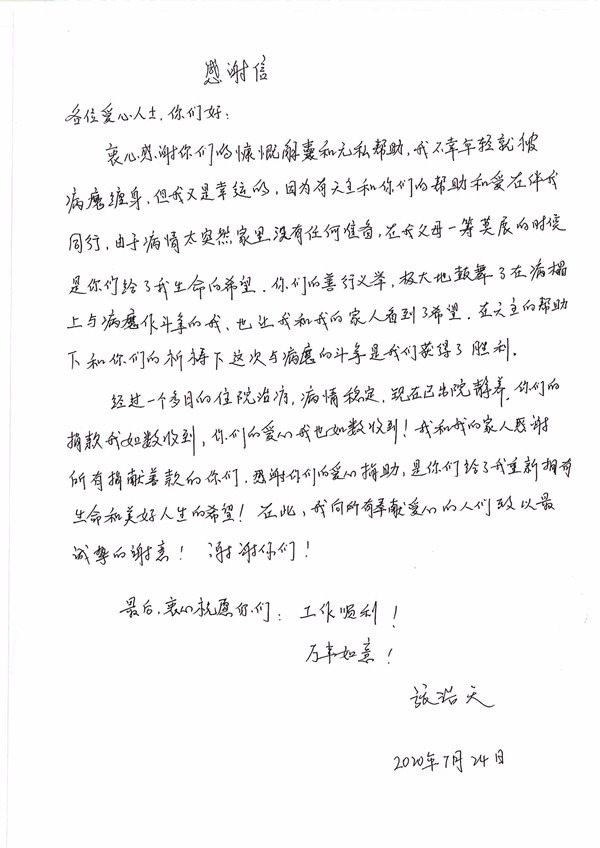 感谢信
各位爱心人士，你们好：
衷心感谢你们的慷慨解囊和无私帮助，我不幸年轻就被
病魔缠身，但我又是幸运的，因为有天主和你们的帮助和爱在伴我
同行，由于病情太突然家里没有任何准备，在我父母一筹莫展的时候
是你们给了我生命的希望．你们的善行义举，极大地鼓舞了在病榻
上与病魔作斗争的我、也让我和我的家人看到了希望．在天主的帮助
下和你们的祈祷下这次与病魔的斗争是我们获得了胜利．
经过一个多月的住院治疗，病情稳定，现在已出院静养．你们的
捐款我如数收到，你们的爱心我也如数收到！我和我的家人感谢
所有捐献善款的你们．感谢你们的爱心捐助，是你们给了我重新拥有
生命和美好人生的希望！在此，我向所有奉献爱心的人们致以最
诚挚的谢意！ 谢谢你们！
最后，衷心祝愿你们：工作顺利！
万事如意！
浩天
2020年7月24日